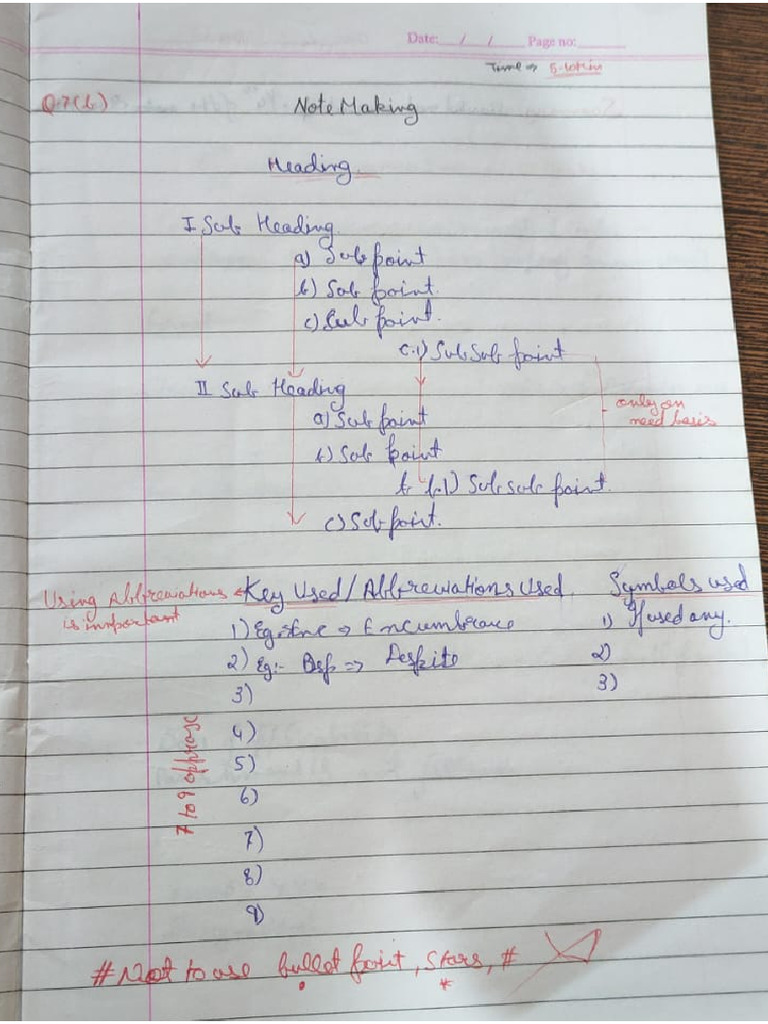 Date: / / Page no:
Time => 5-10 Min
Q.7(b) Note Making
Heading
I Sub Heading
a) Sub point
b) Sub point.
c) Sub point.
c.1) Sub Sub point
II Sub Heading
a) Sub point
b) Sub point
b.1) Sub sub point.
c) Sub point.
only on
need basis
Using Abbreviations Key Used / Abbreviations Used Symbols used
is important
1) Eg: Enc => Encumberance 1) If used any.
2) Eg:- Desp => Despite 2)
3) 3)
4)
5)
6)
7)
8)
9)
7 to 9 approx
# Not to use bullet point, stars, #
• *